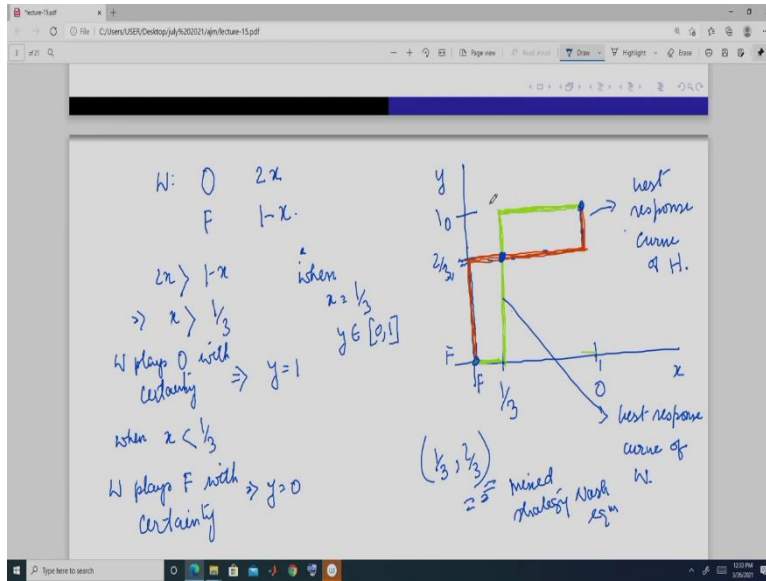 lecture-15.pdf
File | C:/Users/USER/Desktop/july%202021/ajm/lecture-15.pdf
3 of 21
Page view
Read aloud
Draw
Highlight
Erase
W: O 2x
F 1-x.
2x > 1-x
=> x > 1/3
W plays O with
certainty => y=1
when
x = 1/3
y ∈ [0,1]
when x < 1/3
W plays F with => y=0
certainty
y
1 O
2/3
F
F
1/3
1
O
x
best
response
curve
of H.
best response
curve of
W.
(1/3, 2/3)
mixed
strategy Nash
eqm
Type here to search
12:33 PM
3/26/2021